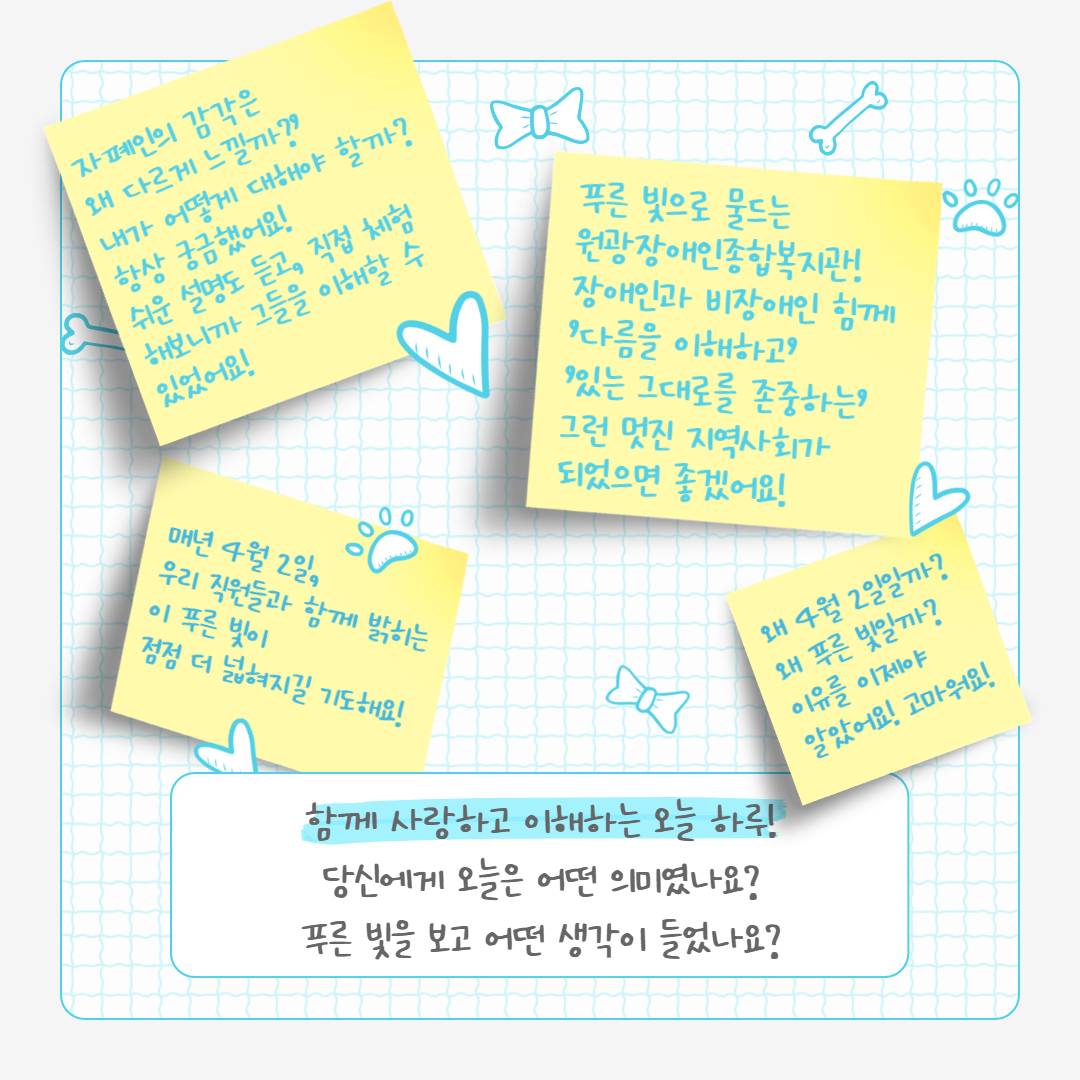 자폐인의 감각은
왜 다르게 느낄까?'
내가 어떻게 대해야 할까?
항상 궁금했어요!
쉬운 설명도 듣고, 직접 체험
해보니까 그들을 이해할 수
있었어요!
푸른 빛으로 물드는
원광장애인종합복지관!
장애인과 비장애인 함께
'다름을 이해하고'
'있는 그대로를 존중하는'
그런 멋진 지역사회가
되었으면 좋겠어요!
매년 4월 2일,
우리 직원들과 함께 밝히는
이 푸른 빛이
점점 더 넓혀지길 기도해요!
왜 4월 2일일까?
왜 푸른 빛일까?
이유를 이제야
알았어요! 고마워요!
함께 사랑하고 이해하는 오늘 하루!
당신에게 오늘은 어떤 의미였나요?
푸른 빛을 보고 어떤 생각이 들었나요?